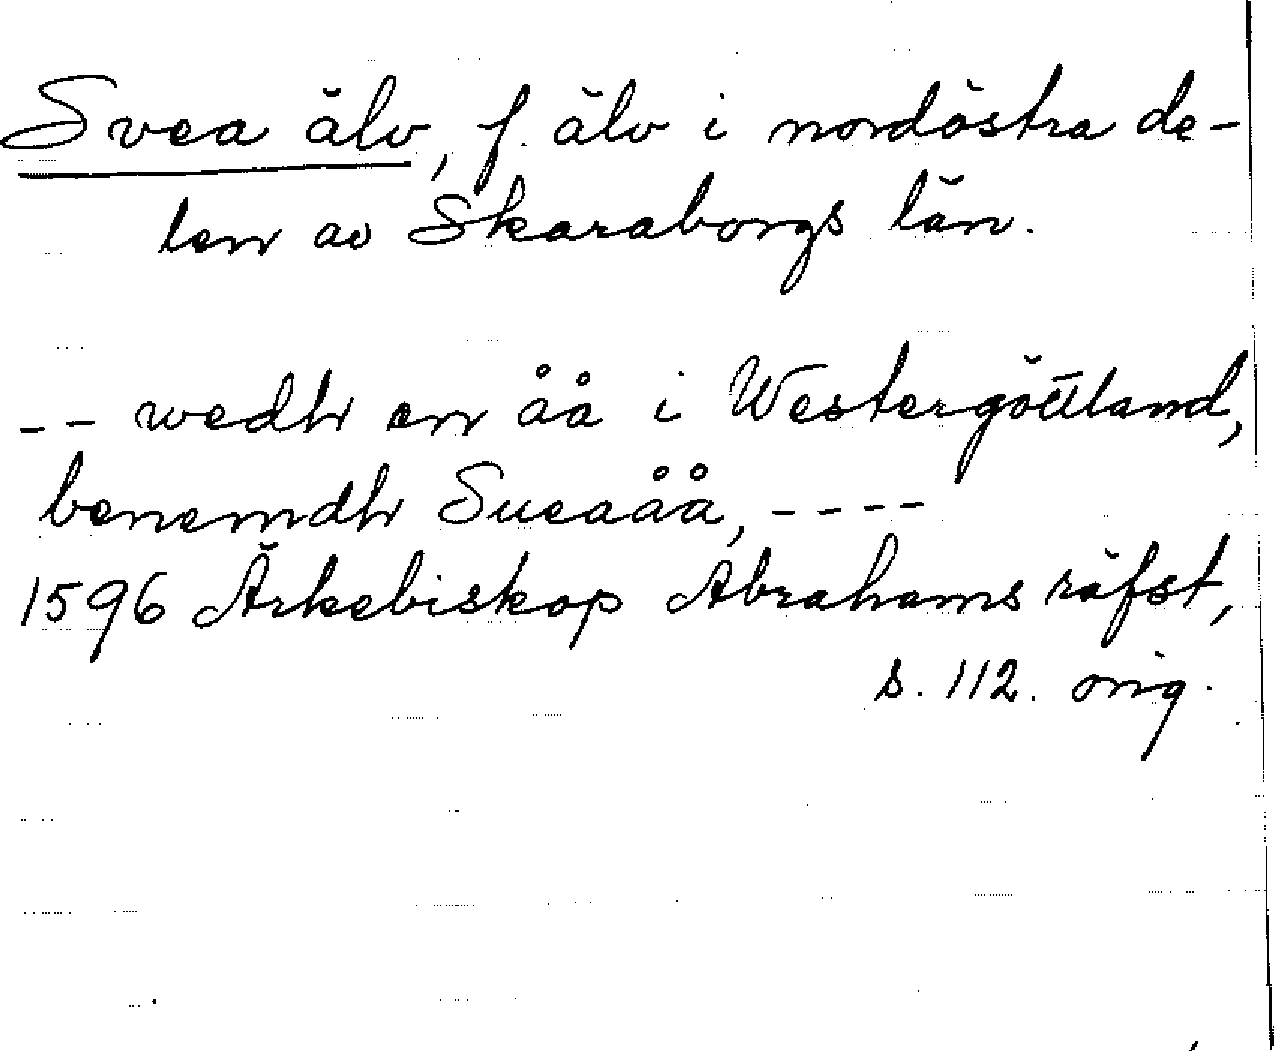 Svea älv, f. älv i nordöstra de-
len av Skaraborgs län.
-- wedh en åå i Westergötlland,
benemdh Sueaåå, ----
1596 Ärkebiskop Abrahams räfst,
s. 112. orig.